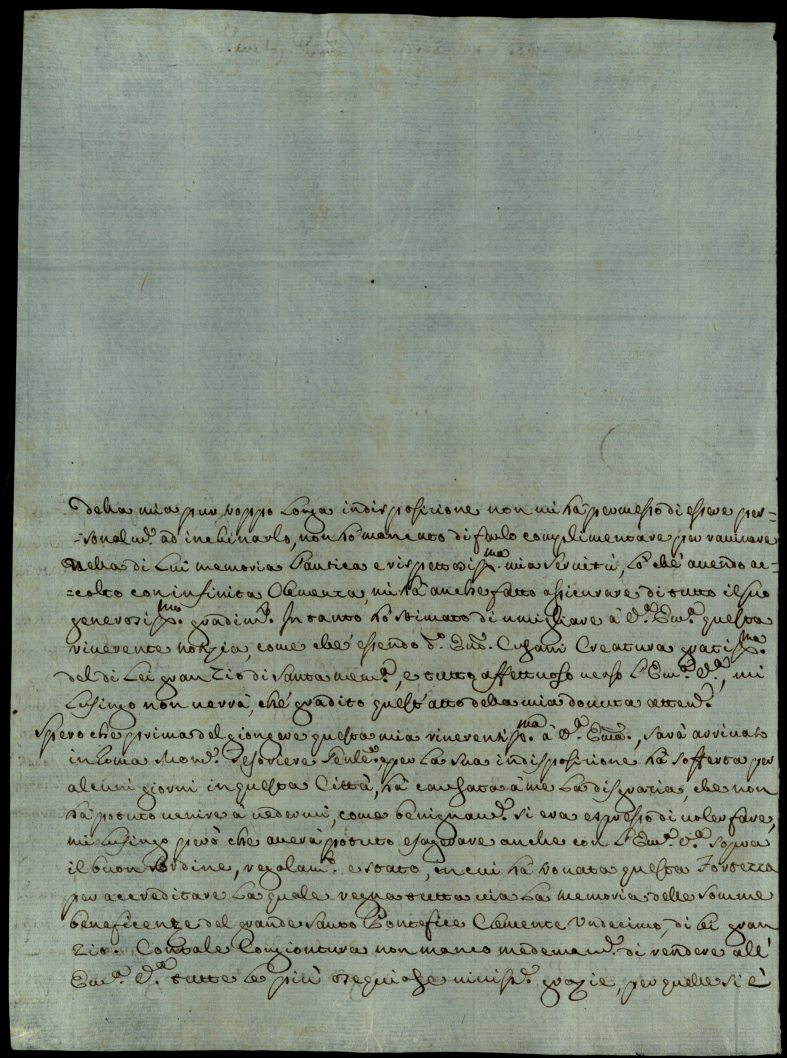 della mia pur troppo longa indisposizione non mi hà permesso di essere per=
=sonalm.e ad inchinarlo, non hò mancato di farlo complimentare per ravivare
nella di Lui memoria l'antica e rispettosiss.ma mia servitù, Lo che avendo ac=
=colto con infinita Clemenza, mi hà anche fatto assicurare di tutto il suo
generosiss.mo gradim.to. In tanto hò stimato di umigliare à V.ra Em.a questa
riverente notizia, come che essendo d.o Em.o Cusani Creatura gratiss.ma
del di Lei gran Zio di Santa mem.a, e tutto affettuoso verso l'Em.a V.ra, mi
lusingo non verrà, che gradito quest'atto della mia dovuta atten.e
Spero che prima del giongere questa mia riverentiss.ma à V.ra Em.a, sarà arrivato
in Roma Mons.r Tesoriere Gen.le, e per La sua indisposizione hà sofferta per
alcuni giorni in questa Città, hà causata à me La disgrazia, che non
hà potuto venire à vedermi, come benignam.e si era espresso di voler fare,
mi lusingo però che averà potuto esagerare anche con l'Em.a V.ra sopra
il buon ordine, regolam.o e stato, in cui hà trovata questa Fortezza
per accreditare La quale regna tutta via La memoria delle somme
beneficenze del grande Santo Pontefice Clemente Undecimo, di Lei gran
Zio. Con tale congiontura non manco medemam.e di rendere all'
Em.a V.ra tutte le più ossequiose grazie, per quelle si è